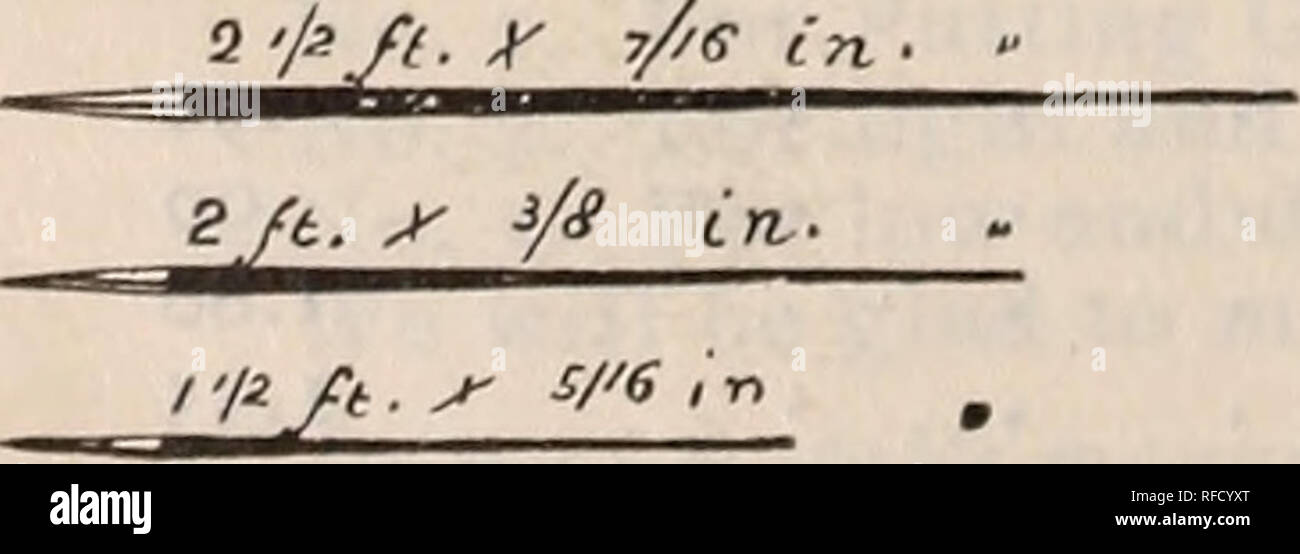 2 1/2 ft. X 7/16 in. "
2 ft. X 3/8 in. "
1 1/2 ft. X 5/16 in
alamy
a
alamy
a a alamy a a
a a a a
alamy
Image ID: RFCYXT
www.alamy.com